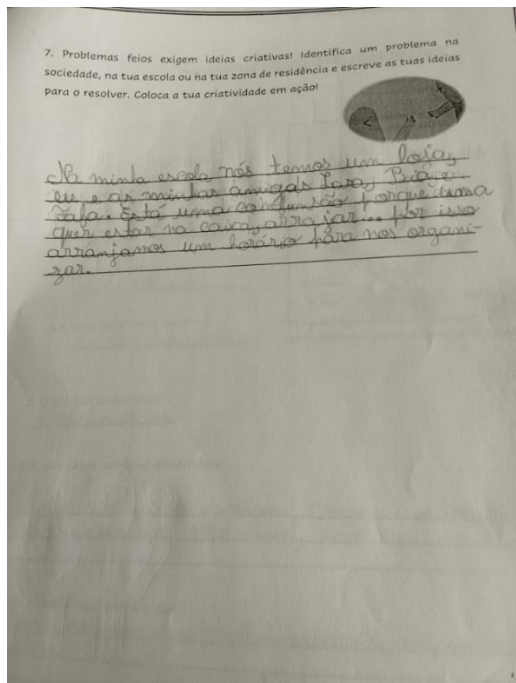 7. Problemas feios exigem ideias criativas! Identifica um problema na
sociedade, na tua escola ou na tua zona de residência e escreve as tuas ideias
para o resolver. Coloca a tua criatividade em ação!
Na minha escola nós temos um loja,
eu e as minhas amigas Lara, Bia e
Fafa. Está uma confunsão porque uma
quer estar na caixa, arrajar... por isso
arranjamos um horário para nos organi-
zar.